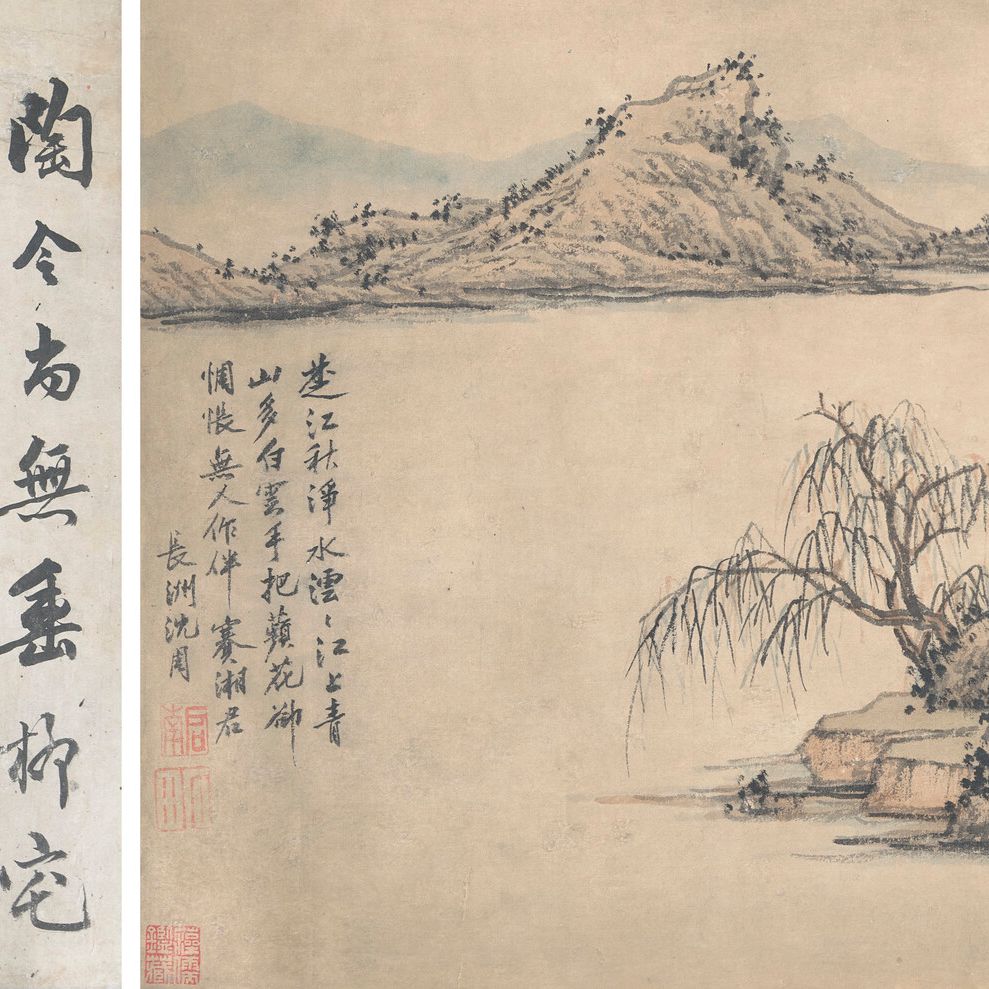 楚江秋淨水澐〻江上青
山多白雲手把蘋花卻
惆悵無人作伴賽湘君
長洲沈周
启南
陶令尚無垂柳宅